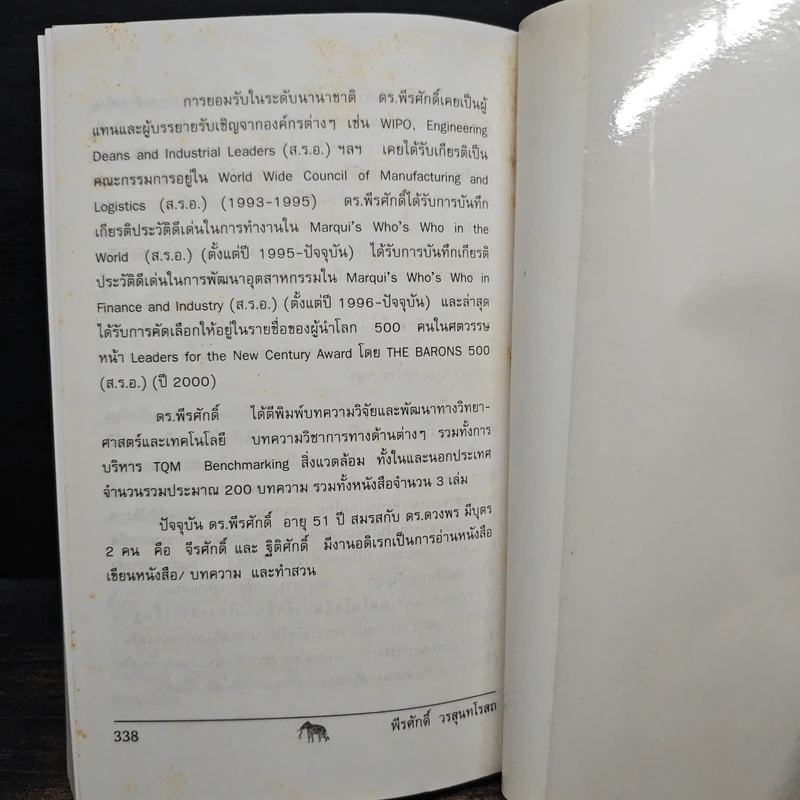 การยอมรับในระดับนานาชาติ ดร.พีรศักดิ์เคยเป็นผู้
แทนและผู้บรรยายรับเชิญจากองค์กรต่างๆ เช่น WIPO, Engineering
Deans and Industrial Leaders (ส.ร.อ.) ฯลฯ เคยได้รับเกียรติเป็น
คณะกรรมการอยู่ใน World Wide Council of Manufacturing and
Logistics (ส.ร.อ.) (1993-1995) ดร.พีรศักดิ์ได้รับการบันทึก
เกียรติประวัติดีเด่นในการทำงานใน Marqui's Who's Who in the
World (ส.ร.อ.) (ตั้งแต่ปี 1995-ปัจจุบัน) ได้รับการบันทึกเกียรติ
ประวัติดีเด่นในการพัฒนาอุตสาหกรรมใน Marqui's Who's Who in
Finance and Industry (ส.ร.อ.) (ตั้งแต่ปี 1996-ปัจจุบัน) และล่าสุด
ได้รับการคัดเลือกให้อยู่ในรายชื่อของผู้นำโลก 500 คนในศตวรรษ
หน้า Leaders for the New Century Award โดย THE BARONS 500
(ส.ร.อ.) (ปี 2000)
ดร.พีรศักดิ์ ได้ตีพิมพ์บทความวิจัยและพัฒนาทางวิทยา-
ศาสตร์และเทคโนโลยี บทความวิชาการทางด้านต่างๆ รวมทั้งการ
บริหาร TQM Benchmarking สิ่งแวดล้อม ทั้งในและนอกประเทศ
จำนวนรวมประมาณ 200 บทความ รวมทั้งหนังสือจำนวน 3 เล่ม
ปัจจุบัน ดร.พีรศักดิ์ อายุ 51 ปี สมรสกับ ดร.ดวงพร มีบุตร
2 คน คือ จีรศักดิ์ และ ฐิติศักดิ์ มีงานอดิเรกเป็นการอ่านหนังสือ
เขียนหนังสือ/ บทความ และทำสวน
338 พีรศักดิ์ วรสุนทโรสถ